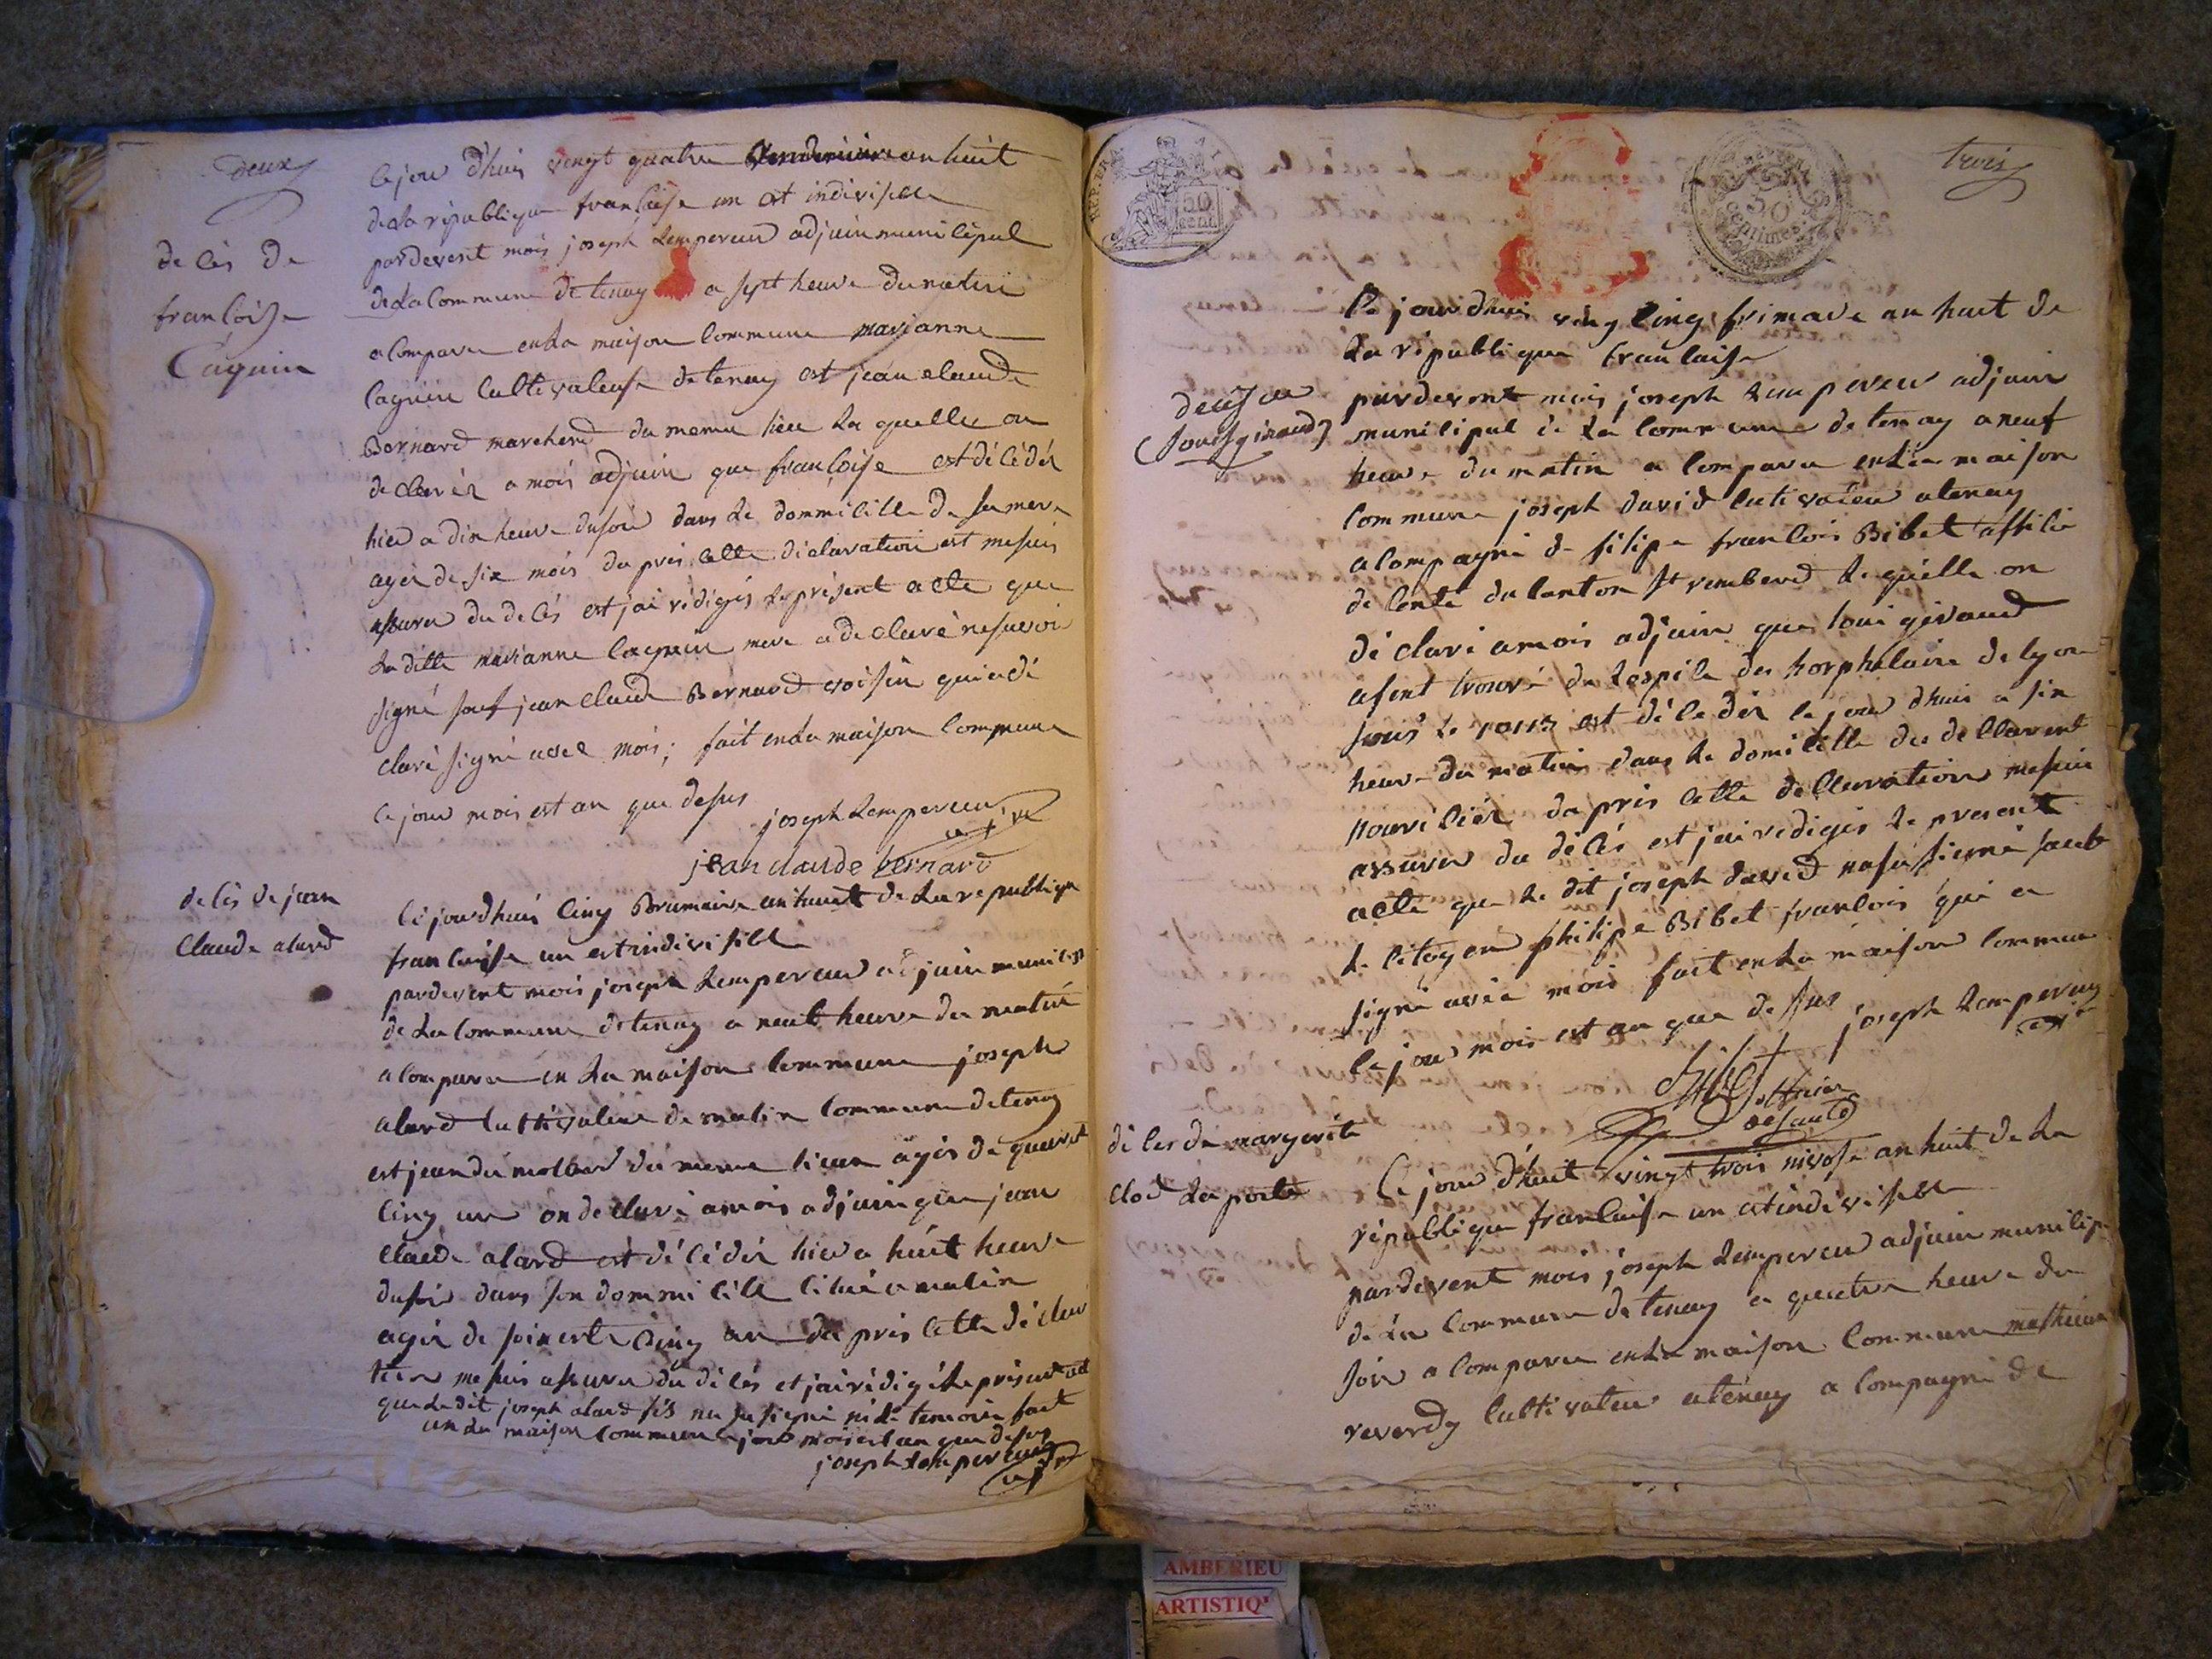 deux
decès de
françoise
Caguin
cejour d'hui vingt quatre Vendemiaire an huit
dela république françoise un et indivisible
pardevent mois joseph Lempereur adjuin municipal
dela Commune de tenay a sept heure du matin
a Comparu enla maison Commune marianne
Caguin Cultivateuse de tenay est jean claude
Bernard marchend du meme lieu la quelle on
declarér a mois adjuin que françoise est décédér
hier a dix heure dusoir dans le dommicille de sa mere
agér de six mois da près cette déclaration est me suis
assuru du decés est jai rédigés le présent acte que
la ditte marianne Caguin mere a declaré ne savoir
signé sauf jean claude Bernard voisin qui a dé
claré signé avec mois; fait enla maison Commune
ce jour mois est an que desus
joseph Lempereur
adjt
jean claude bernard
decès de jean
Claude alard
ce jourdhui Cinq Brumaire an huit de la republique
françaisse un est indivisible
pardevent mois joseph Lempereur adjuin municipal
de la Commune de tenay a neuf heure du matin
a Comparu en la maison Commune joseph
alard Cultivateur de malix Commune de tenay
est jean du mollard du meme lieux agés de quarent
Cinq an on declaré a mois adjuin que jean
Claude alard est décédér hier a huit heure
dusoir dans son dommicille citué a malix
agér de soixente Cinq an da près cette déclar
tion me suis assuru du décés et jai rédigé le présent act
que le dit joseph alard fils na su signé ni le temoin fait
en la maison Commune jour mois et an que desus
joseph Lempereur
adjt
trois
50
cent.
50
Centimes
Ce jourdhui ving Cinq frimare an huit de
la république francaise
deces de
(Louis giraud)
pardevent mois joseph Lempereur adjuin
municipal de la Commune de tenay a neuf
heure du matin a Comparu enla maison
Commune joseph david Cutivateur a tenay
acompagné de filipe francois Bibet officié
de senté du Canton st remberd lequelle on
déclaré a mois adjuin que Loui giraud
afent trouvé de lospice des horphelain de lyon
sous le 10113 est décedér cejour dhui a six
heure du matin dans le domicille du declarent
nouricier da près cette declaration mesuis
assurer du décés est jai redigés le present
acte que le dit joseph david nasu signé sauf
le citoyen philipe Bibet francois qui a
signé avec mois fait enla maison Commune
ce jour mois est an que desus
joseph Lempereur
adjt
Bibet officier
de santé
décés de margerite
Clod Laporte
Ce jour d'huit vingt trois nivose an huit de la
république francaise un et indivisible
pardevent mois joseph Lempereur adjuin municip
de la Commune de tenay a quatre heure du
soir a Comparu enla maison Commune mathieu
reverdy Cultivateur a tenay a Compagné de
AMBERIEU
ARTISTIQ'